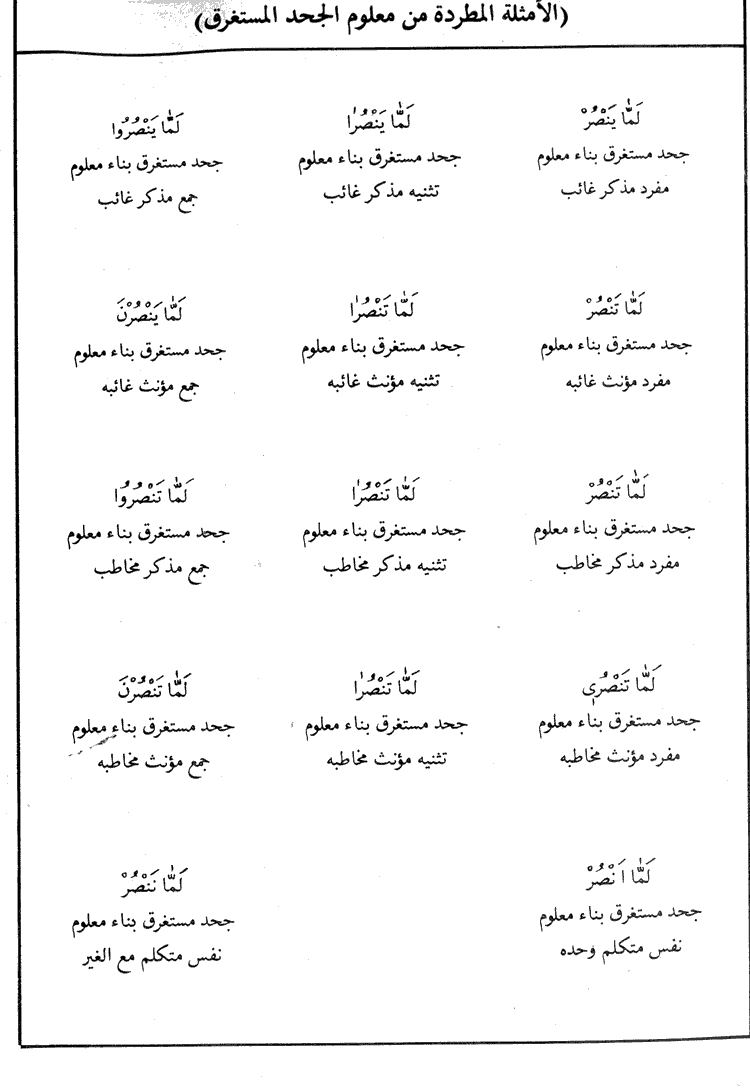 (الأمثلة المطردة من معلوم الجحد المستغرق)
لَمَّا يَنْصُرْ
جحد مستغرق بناء معلوم
مفرد مذكر غائب
لَمَّا يَنْصُرَا
جحد مستغرق بناء معلوم
تثنيه مذكر غائب
لَمَّا يَنْصُرُوا
جحد مستغرق بناء معلوم
جمع مذكر غائب
لَمَّا تَنْصُرْ
جحد مستغرق بناء معلوم
مفرد مؤنث غائبه
لَمَّا تَنْصُرَا
جحد مستغرق بناء معلوم
تثنيه مؤنث غائبه
لَمَّا يَنْصُرْنَ
جحد مستغرق بناء معلوم
جمع مؤنث غائبه
لَمَّا تَنْصُرْ
جحد مستغرق بناء معلوم
مفرد مذكر مخاطب
لَمَّا تَنْصُرَا
جحد مستغرق بناء معلوم
تثنيه مذكر مخاطب
لَمَّا تَنْصُرُوا
جحد مستغرق بناء معلوم
جمع مذكر مخاطب
لَمَّا تَنْصُرِى
جحد مستغرق بناء معلوم
مفرد مؤنث مخاطبه
لَمَّا تَنْصُرَا
جحد مستغرق بناء معلوم
تثنيه مؤنث مخاطبه
لَمَّا تَنْصُرْنَ
جحد مستغرق بناء معلوم
جمع مؤنث مخاطبه
لَمَّا اَنْصُرْ
جحد مستغرق بناء معلوم
نفس متكلم وحده
لَمَّا نَنْصُرْ
جحد مستغرق بناء معلوم
نفس متكلم مع الغير